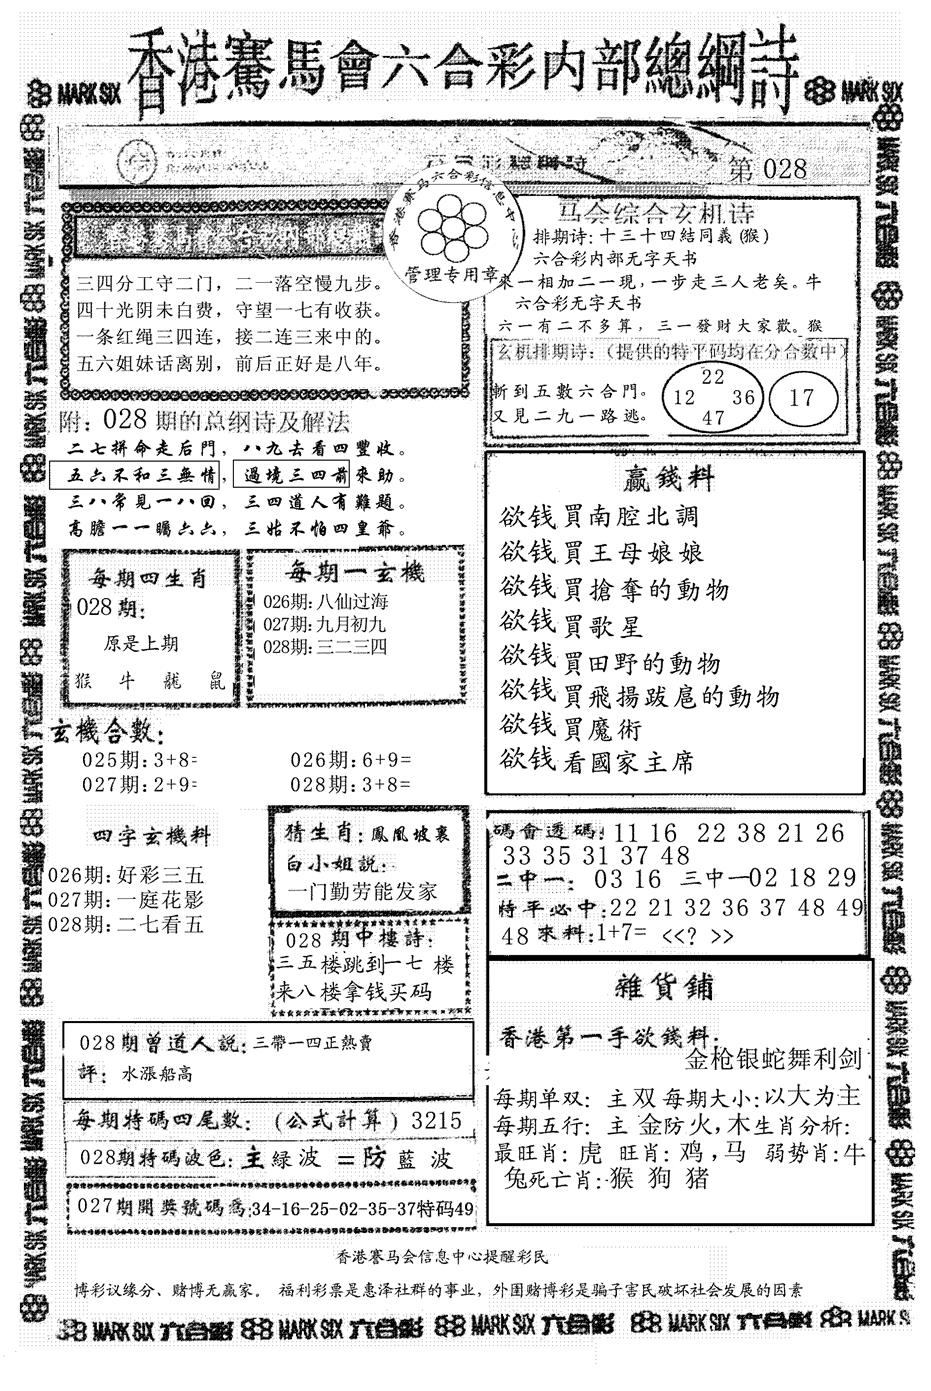 香港賽馬會六合彩内部總綱詩
MARK SIX
MARK SIX
第 028
香港赛马六合彩信息中心
管理专用章
三四分工守二门，二一落空慢九步。
四十光阴未白费，守望一七有收获。
一条红绳三四连，接二连三来中的。
五六姐妹话离别，前后正好是八年。
马会综合玄机诗
排期诗:十三十四結同義(猴)
六合彩内部无字天书
來一相加二一現,一步走三人老矣。牛
六合彩无字天书
六一有二不多算，三一發財大家歡。猴
玄机排期诗:（提供的特平码均在分合数中）
斬到五數六合門。
又見二九一路逃。
22
12 36
47
17
附: 028 期的总纲诗及解法
二七拼命走后門，八九去看四豐收。
五六不和三無情，過境三四前來助。
三八常見一八回，三四道人有難題。
高膽一一矚六六，三姑不怕四皇爺。
每期四生肖
028期:
原是上期
猴 牛 龍 鼠
每期一玄機
026期:八仙过海
027期:九月初九
028期:三二三四
贏錢料
欲钱買南腔北調
欲钱買王母娘娘
欲钱買搶奪的動物
欲钱買歌星
欲钱買田野的動物
欲钱買飛揚跋扈的動物
欲钱買魔術
欲钱看國家主席
玄機合數:
025期:3+8= 026期:6+9=
027期:2+9= 028期:3+8=
四字玄機料
026期:好彩三五
027期:一庭花影
028期:二七看五
猜生肖:鳳凰坡裏
白小姐説:
一门勤劳能发家
028 期中樓詩:
三五楼跳到一七 楼
来八楼拿钱买码
碼會透碼: 11 16 22 38 21 26
33 35 31 37 48
二中一: 03 16 三中一02 18 29
特平必中:22 21 32 36 37 48 49
48 來料:1+7= <<? >>
028期曾道人説:三帶一四正熱賣
評: 水漲船高
每期特碼四尾數: (公式計算) 3215
028期特碼波色:主緑波 =防藍波
027期開獎號碼爲:34-16-25-02-35-37特码49
雜貨鋪
香港第一手欲錢料:
金枪银蛇舞利剑
每期单双: 主双 每期大小:以大为主
每期五行: 主 金防火,木生肖分析:
最旺肖: 虎 旺肖: 鸡,马 弱势肖:牛
兔死亡肖:猴 狗 猪
香港赛马会信息中心提醒彩民
博彩议缘分、赌博无赢家。 福利彩票是惠泽社群的事业，外围赌博彩是骗子害民破坏社会发展的因素
MARK SIX 六合彩 MARK SIX 六合彩 MARK SIX 六合彩 MARK SIX 六合彩 MARK SIX